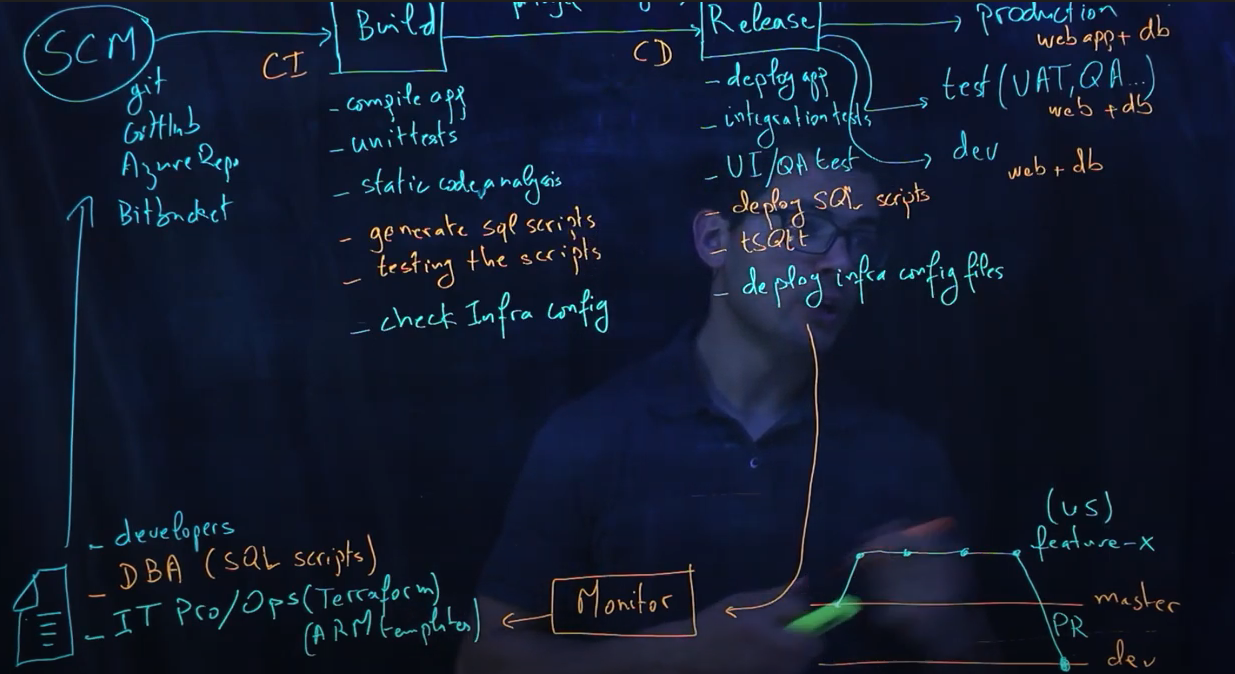 SCM
git
GitHub
Azure Repo
Bitbucket
CI
Build
- compile app
- unit tests
- static code analysis
- generate sql scripts
- testing the scripts
- check Infra config
CD
Release
- deploy app
- integration tests
- UI/QA test
- deploy SQL scripts
- tSQtt
- deploy infra config files
production
web app + db
test (UAT, QA...)
web + db
dev
web + db
- developers
- DBA (SQL scripts)
- IT Pro/Ops (Terraform)
(ARM templates)
Monitor
(US)
feature-x
master
PR
dev